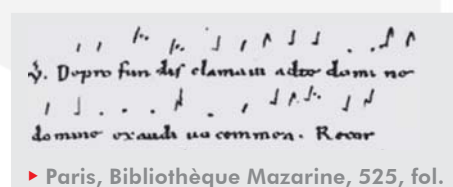 ℣. Depro fun dis clamaui adte domi ne
domine exaudi uocemmea. Recor
▸ Paris, Bibliothèque Mazarine, 525, fol.